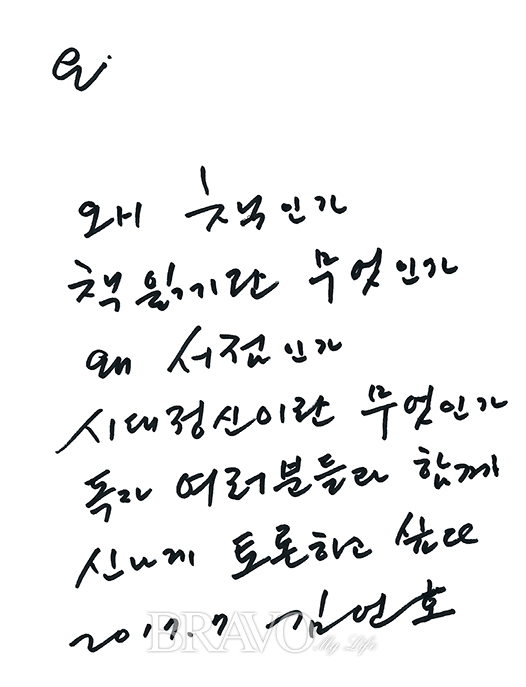 왜 책인가
책 읽기란 무엇인가
왜 서점인가
시대정신이란 무엇인가
독자 여러분들과 함께
신나게 토론하고 싶다
2017.7 김언호
BRAVO My Life